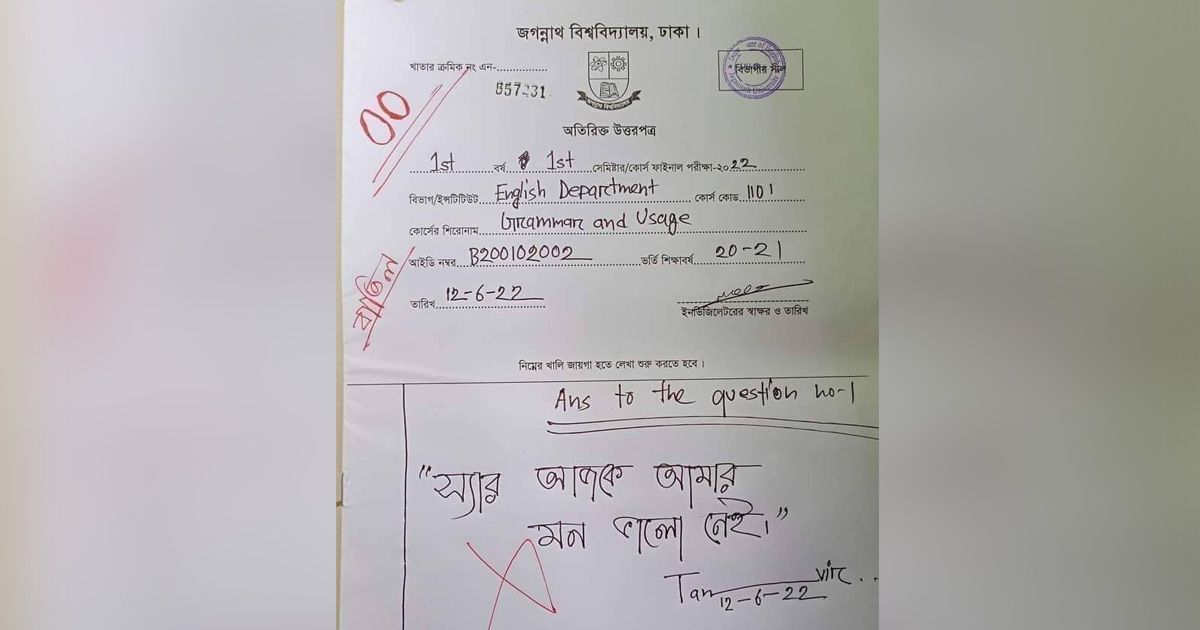 জগন্নাথ বিশ্ববিদ্যালয়, ঢাকা।
খাতার ক্রমিক নং এন-...............
657231
বিভাগীয় সীল
জগন্নাথ বিশ্ববিদ্যালয়
00
অতিরিক্ত উত্তরপত্র
1st বর্ষ 1st সেমিষ্টার/কোর্স ফাইনাল পরীক্ষা-২০22
বিভাগ/ইন্সটিটিউট English Department কোর্স কোড 1101
কোর্সের শিরোনাম Grammar and Usage
আইডি নম্বর B200102002 ভর্তি শিক্ষাবর্ষ 20-21
বাতিল
তারিখ 12-6-22
ইনভিজিলেটরের স্বাক্ষর ও তারিখ
নিম্নের খালি জায়গা হতে লেখা শুরু করতে হবে।
Ans to the question no-1
"স্যার আজকে আমার
মন ভালো নেই।"
Tanvir..
12-6-22